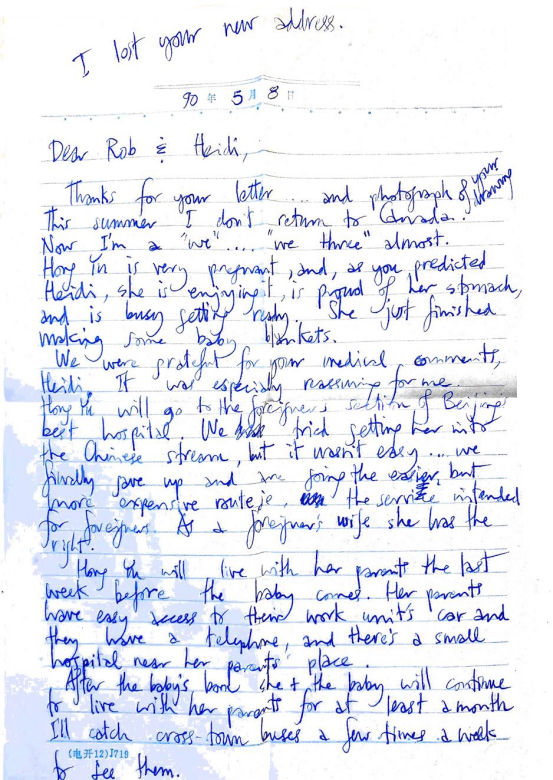 I lost your new address.
90年 5月 8日
Dear Rob & Heidi,
Thanks for your letter ... and photograph of your drawing
This summer I don't return to Canada.
Now I'm a "we".... "we three" almost.
Hong Yu is very pregnant, and, as you predicted
Heidi, she is enjoying it, is proud of her stomach,
and is busy getting ready. She just finished
making some baby blankets.
We were grateful for your medical comments,
Heidi. It was especially reassuring for me.
Hong Yu will go to the foreigners section of Beijing's
best hospital. We tried getting her into
the Chinese stream, but it wasn't easy ... we
finally gave up and are going the easier, but
more expensive route, ie, the service intended
for foreigners. As a foreigner's wife she has the
right.
Hong Yu will live with her parents the last
week before the baby comes. Her parents
have easy access to their work unit's car and
they have a telephone, and there's a small
hospital near her parents' place.
After the baby's born she + the baby will continue
to live with her parents for at least a month
I'll catch cross-town buses a few times a week
(电开12)J719
to see them.